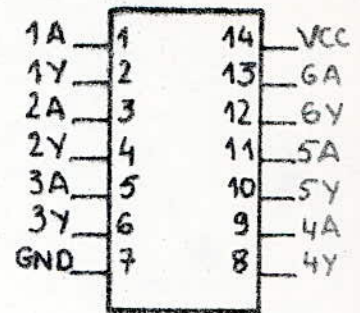 1A 1 14 VCC
1Y 2 13 6A
2A 3 12 6Y
2Y 4 11 5A
3A 5 10 5Y
3Y 6 9 4A
GND 7 8 4Y